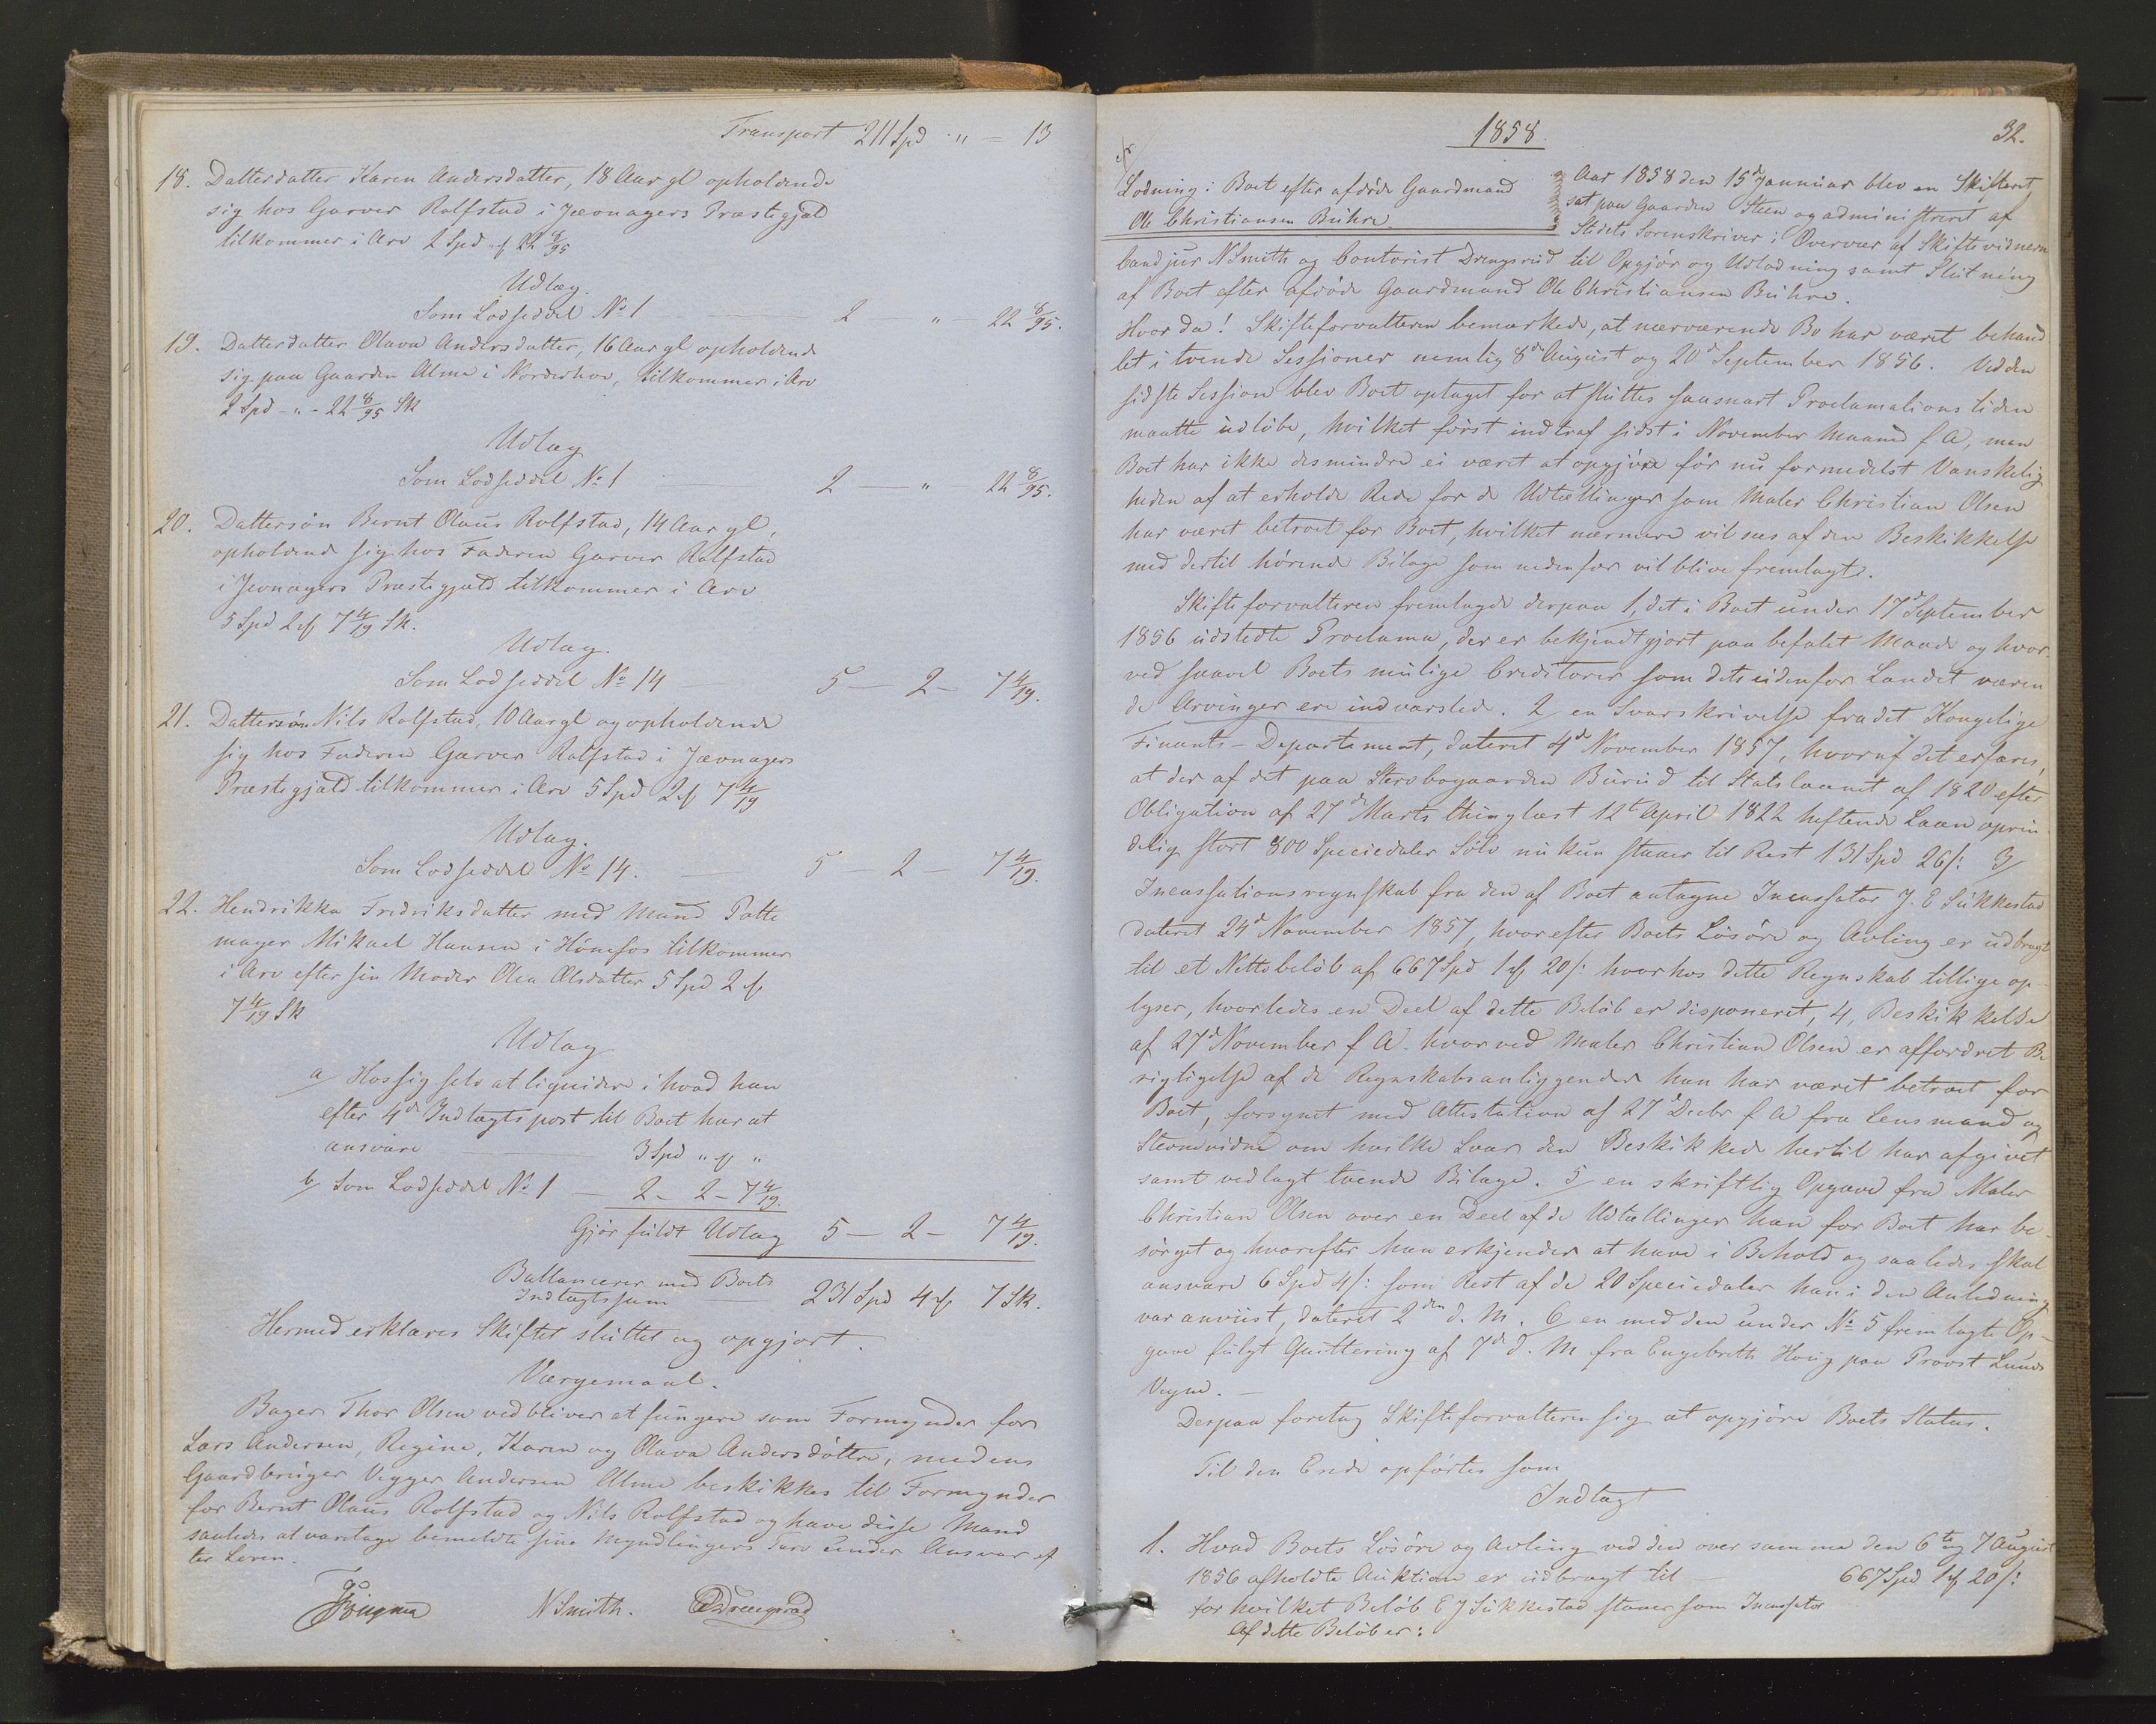 Transport 211 Spd " - 13
18. Datterdatter Karen Andersdatter, 18 Aar gl opholdende
sig hos Garver Rolfstad i Jævnagers Præstegjæld
tilkommer i Arv 2 Spd " 22 8/95
Udlæg.
Som Lodseddel No 1 2 " 22 8/95.
19. Datterdatter Olava Andersdatter, 16 Aar gl opholdende
sig paa Gaarden Alme i Norderhov, tilkommer i Arv
2 Spd - " - 22 8/95 Sk
Udlæg
Som Lodseddel No 1 2 — " 22 8/95.
20. Dattersøn Bernt Olaus Rolfstad, 14 Aar gl,
opholdende sig hos Faderen Garver Rolfstad
i Jevnagers Præstegjæld tilkommer i Arv
5 Spd 2 ꝗ 7 4/19 Sk.
Udlæg.
Som Lodseddel No 14 5 — 2 — 7 4/19.
21. Dattersøn Nils Rolfstad, 10 Aar gl og opholdende
sig hos Faderen Garver Rolfstad i Jævnagers
Præstegjæld tilkommer i Arv 5 Spd 2 ꝗ 7 4/19
Udlæg.
Som Lodseddel No 14. 5 — 2 — 7 4/19.
22. Hendrikka Fredriksdatter med Mand Potte
mager Mikael Hansen i Hønefos tilkommer
i Arv efter sin Moder Olea Olsdatter 5 Spd 2 ꝗ
7 4/19 Sk
Udlæg
a/ Hos sig selv at liquidere i hvad han
efter 4de Indtægtspost til Boet har at
ansvare 3 Spd " ꝗ "
b/ Som Lodseddel No 1 — 2 - 2 - 7 4/19.
Gjør fuldt Udlæg 5 — 2 — 7 4/19.
Ballancerer med Boets
Indtægtssum 231 Spd 4 ꝗ 7 Sk.
Hermed erklæres Skiftet sluttet og opgjort.
Værgemaal.
Bager Thor Olsen vedbliver at fungere som Formynder for
Lars Andersen, Regine, Karen og Olava Andersdøttre, medens
Gaardbruger Vegger Andersen Alme beskikkes til Formynder
for Bernt Olaus Rolfstad og Nils Rolfstad og have disse Mænd
saaledes at varetage bemeldte sine Myndlingers Tarv under Ansvar ef
ter Loven.
N Smith. Drengsrud
1858 32.
Lodning i Boet efter afdøde Gaardmand
Ole Christiansen Buhre.
Aar 1858 den 15d Januar blev en Skifteret
sat paa Gaarden Steen og administreret af
Stedets Sorenskriver i Overvær af Skiftevidnerne
Cand jur N Smith og Contorist Drengsrud til Opgjør og Udlodning samt Slutning
af Boet efter afdøde Gaardmand Ole Christiansen Buhre.
Hvor da! Skifteforvalteren bemærkede, at nærværende Bo har været behand
let i tvende Sessioner nemlig 8de August og 20d September 1856. Ved den
sidste Session blev Boet optaget for at sluttes saasnart Proclamationstiden
maatte udløbe, hvilket først indtraf sidst i November Maaned f A, men
Boet har ikke desmindre ei været at opgjøre før nu formedelst Vanskelig
heden af at erholde Rede for de Udtællinger som Maler Christian Olsen
har været betroet for Boet, hvilket nærmere vil sees af den Beskikkelse
med dertil hørende Bilage som nedenfor vil blive fremlagt.
Skifteforvalteren fremlagde derpaa 1, det i Boet under 17d September
1856 udstedte Proclama, der er bekjendtgjort paa befalet Maade og hvor-
ved saavel Boets mulige Creditorer som dets udenfor Landet væren
de Arvinger ere indvarslede. 2/ en Svarskrivelse fra det Kongelige
Finants-Departement, dateret 4d November 1857, hvoraf det erfares,
at der af det paa Stervbogaarden Burud til Statslaanet af 1820 efter
Obligation af 27de Marts thinglæst 12te April 1822 heftende Laan oprin
delig stort 300 Speciedaler Sølv nu kun staaer til Rest 131 Spd 26 s: 3/
Incassationsregnskab fra den af Boet antagne Incassator J. E Sukkestad
dateret 24d November 1857, hvorefter Boets Løsøre og Avling er udbragt
til et Nettobeløb af 667 Spd 1 ꝗ 20 s: hvorhos dette Regnskab tillige op-
lyser, hvorledes en Deel af dette Beløb er disponeret, 4, Beskikkelse
af 27d November f A. hvorved Maler Christian Olsen er affordret Be
rigtigelse af de Regnskabsanliggender han har været betroet for
Boet, forsynet med Attestation af 27d Decbr f A fra Lensmand og
Stevnevidne om hvilke Svar den Beskikkede hertil har afgivet
samt vedlagt tvende Bilage. 5/ en skriftlig Opgave fra Maler
Christian Olsen over en Deel af de Udtællinger han for Boet har be-
sørget og hvorefter han erkjender at have i Behold og saaledes skal
ansvare 6 Spd 4 s: som Rest af de 20 Speciedaler han i den Anledning
var anviist, dateret 2den d. M. 6/ en med den under No 5 fremlagte Op-
gave fulgt Quittering af 7de d. M fra Engebreth Houg paa Provst Lunds
Vegne. —
Derpaa foretog Skifteforvalteren sig at opgjøre Boets Status.
Til den Ende opførtes som
Indtægt
1. Hvad Boets Løsøre og Avling ved den over samme den 6te og 7 August
1856 afholdte Auktion er udbragt til — 667 Spd 1 ꝗ 20 s:
for hvilket Beløb E J Sukkestad staaer som Incassator
Af dette Beløb er: